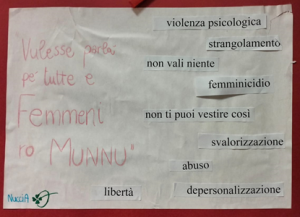 violenza psicologica
strangolamento
non vali niente
femminicidio
non ti puoi vestire così
svalorizzazione
abuso
libertà
depersonalizzazione
Vulesse parlà
pe' tutte e
Femmene
ro MUNNU"
NucciA